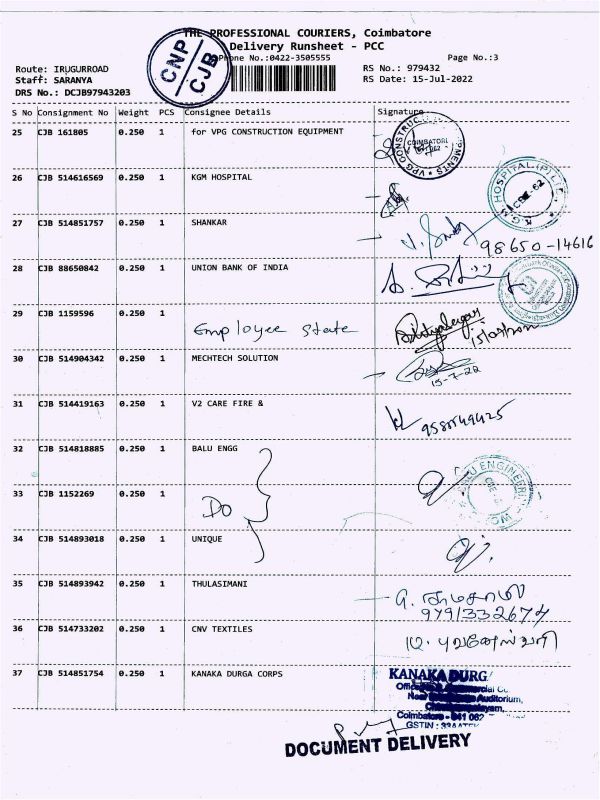 THE PROFESSIONAL COURIERS, Coimbatore
Delivery Runsheet - PCC
Phone No.:0422-3505555
Page No.:3
CNP
CJB
Route: IRUGURROAD
RS No.: 979432
Staff: SARANYA
RS Date: 15-Jul-2022
DRS No.: DCJB97943203
S No Consignment No Weight PCS Consignee Details Signature
25 CJB 161805 0.250 1 for VPG CONSTRUCTION EQUIPMENT
26 CJB 514616569 0.250 1 KGM HOSPITAL
K.G.M. HOSPITAL (P) LTD
27 CJB 514851757 0.250 1 SHANKAR
98650-14616
28 CJB 88650842 0.250 1 UNION BANK OF INDIA
29 CJB 1159596 0.250 1 Employee state
30 CJB 514904342 0.250 1 MECHTECH SOLUTION
15-7-22
31 CJB 514419163 0.250 1 V2 CARE FIRE &
32 CJB 514818885 0.250 1 BALU ENGG
33 CJB 1152269 0.250 1 Do
34 CJB 514893018 0.250 1 UNIQUE
35 CJB 514893942 0.250 1 THULASIMANI
9791332674
36 CJB 514733202 0.250 1 CNV TEXTILES
37 CJB 514851754 0.250 1 KANAKA DURGA CORPS
KANAKA DURG
Coimbatore - 641 062
GSTIN : 33AATFK
DOCUMENT DELIVERY